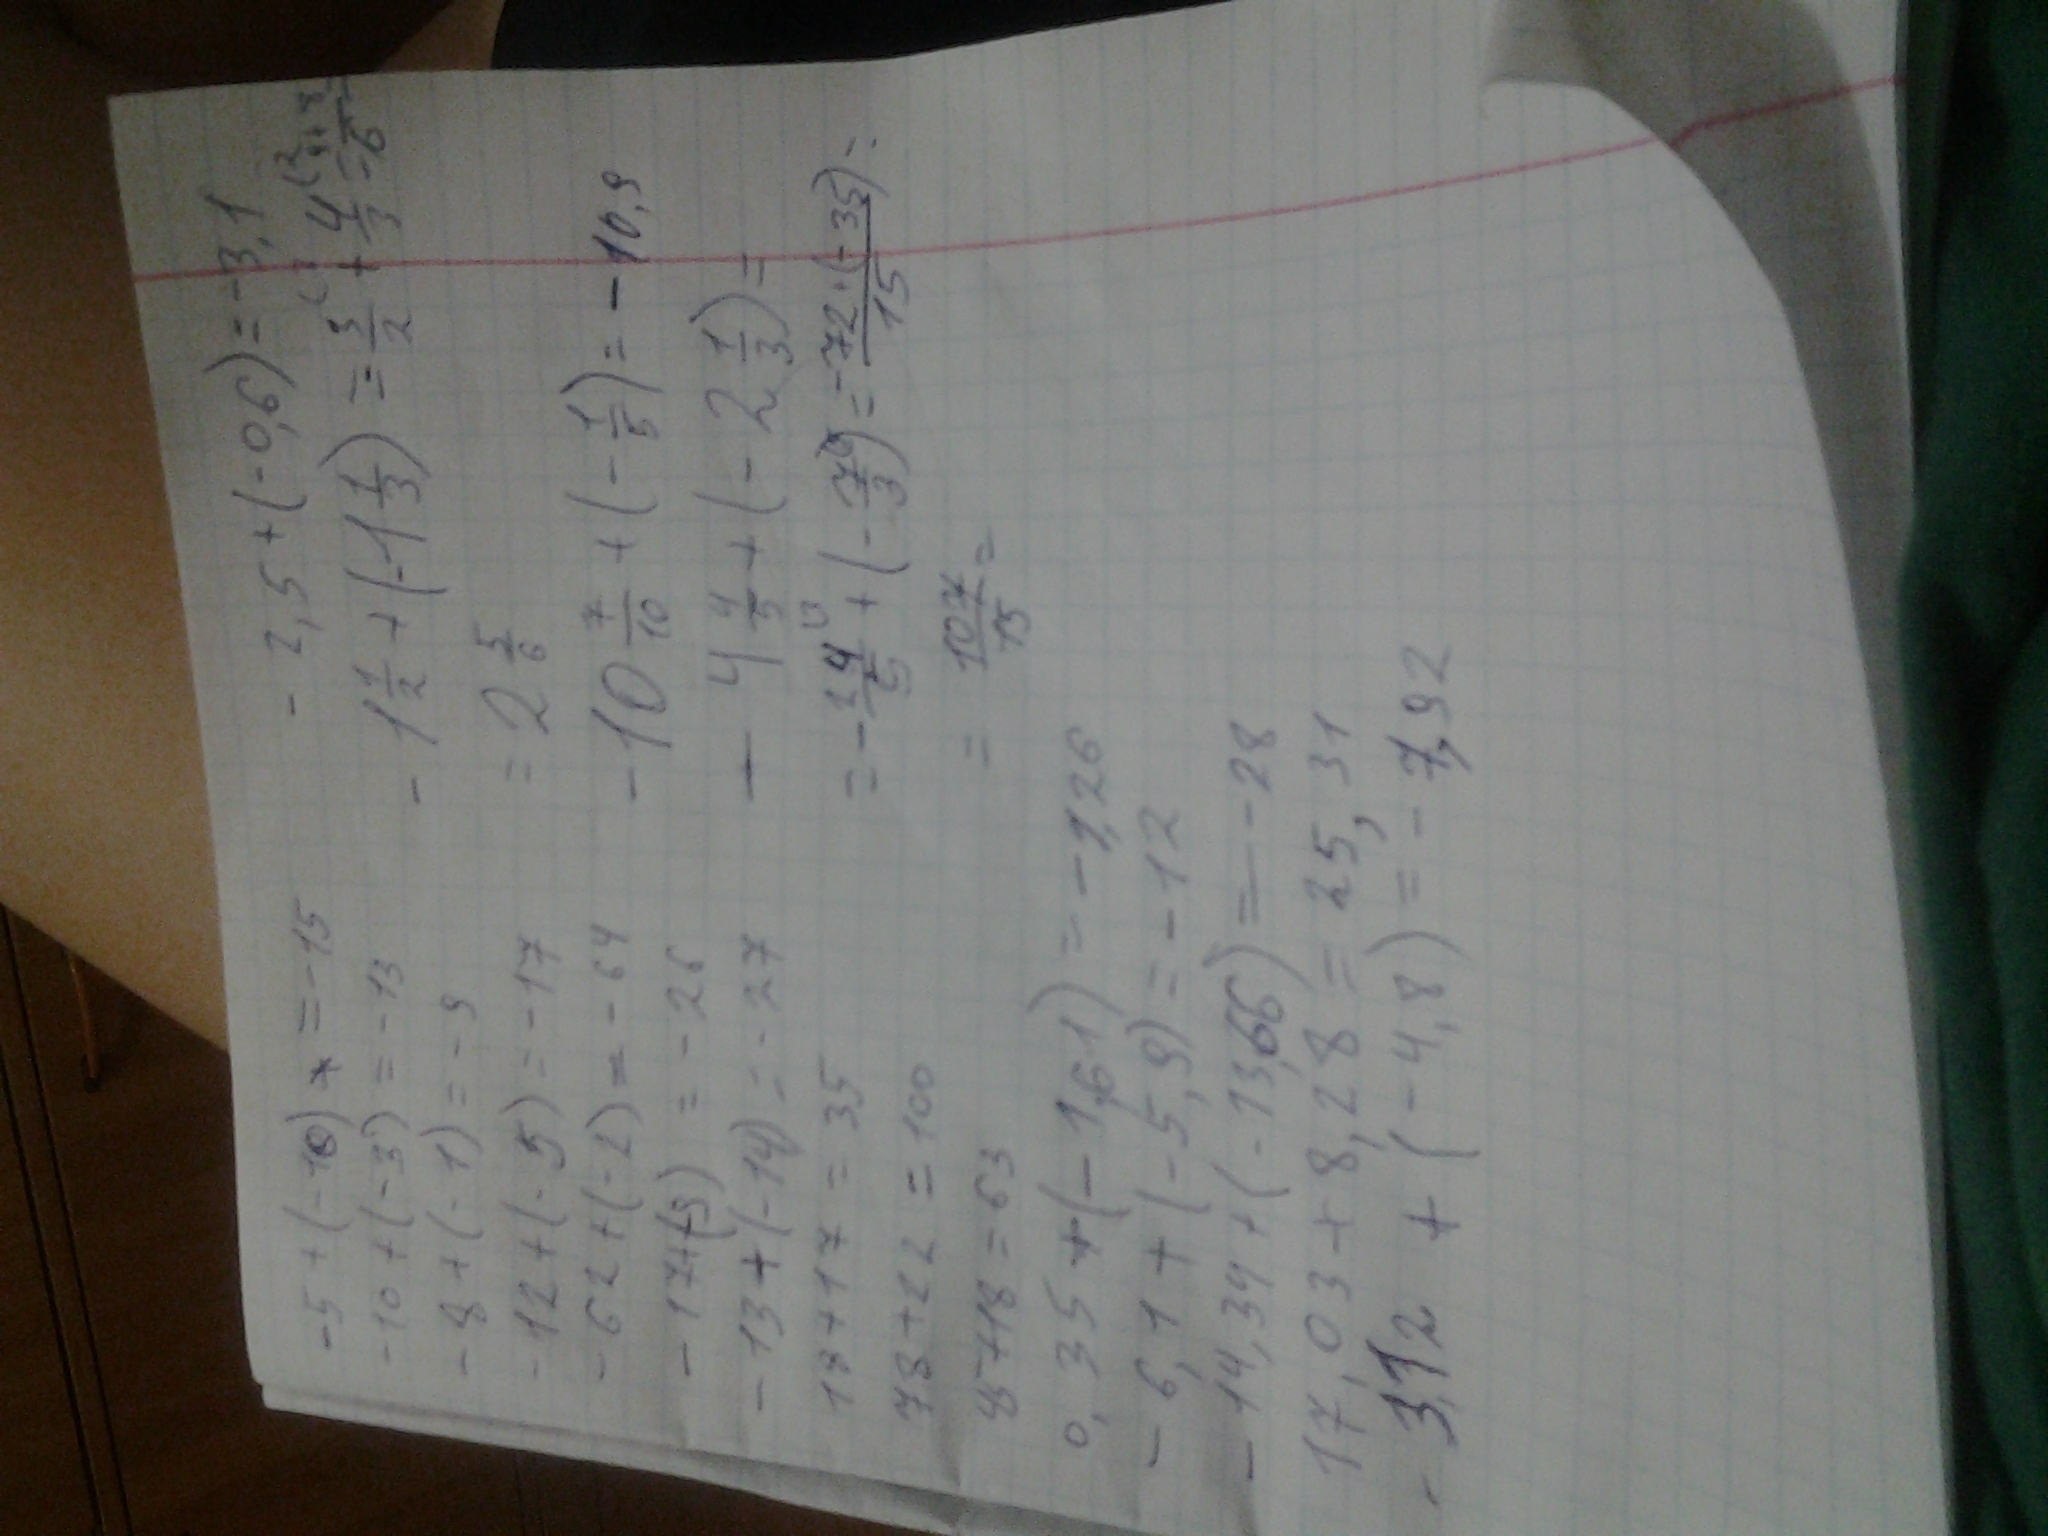 -5+(-10)=-15
-10+(-3)=-13
-8+(-1)=-9
-12+(-5)=-17
-62+(-2)=-64
-17+(-9)=-26
-13+(-14)=-27
18+17=35
78+22=100
45+18=63
0,35+(-1,61)=-1,26
-6,1+(-5,9)=-12
-14,34+(-13,66)=-28
17,03+8,28=25,31
-3,12+(-4,8)=-7,92
-2,5+(-0,6)=-3,1
-1 1/2+(-1 1/3)=3/2+4/3=
=2 5/6
-10 7/10+(-1/5)=-10,9
-4 4/5+(-2 1/3)=
=-24/5+(-7/3)=-72+(-35)/15=
=107/15=